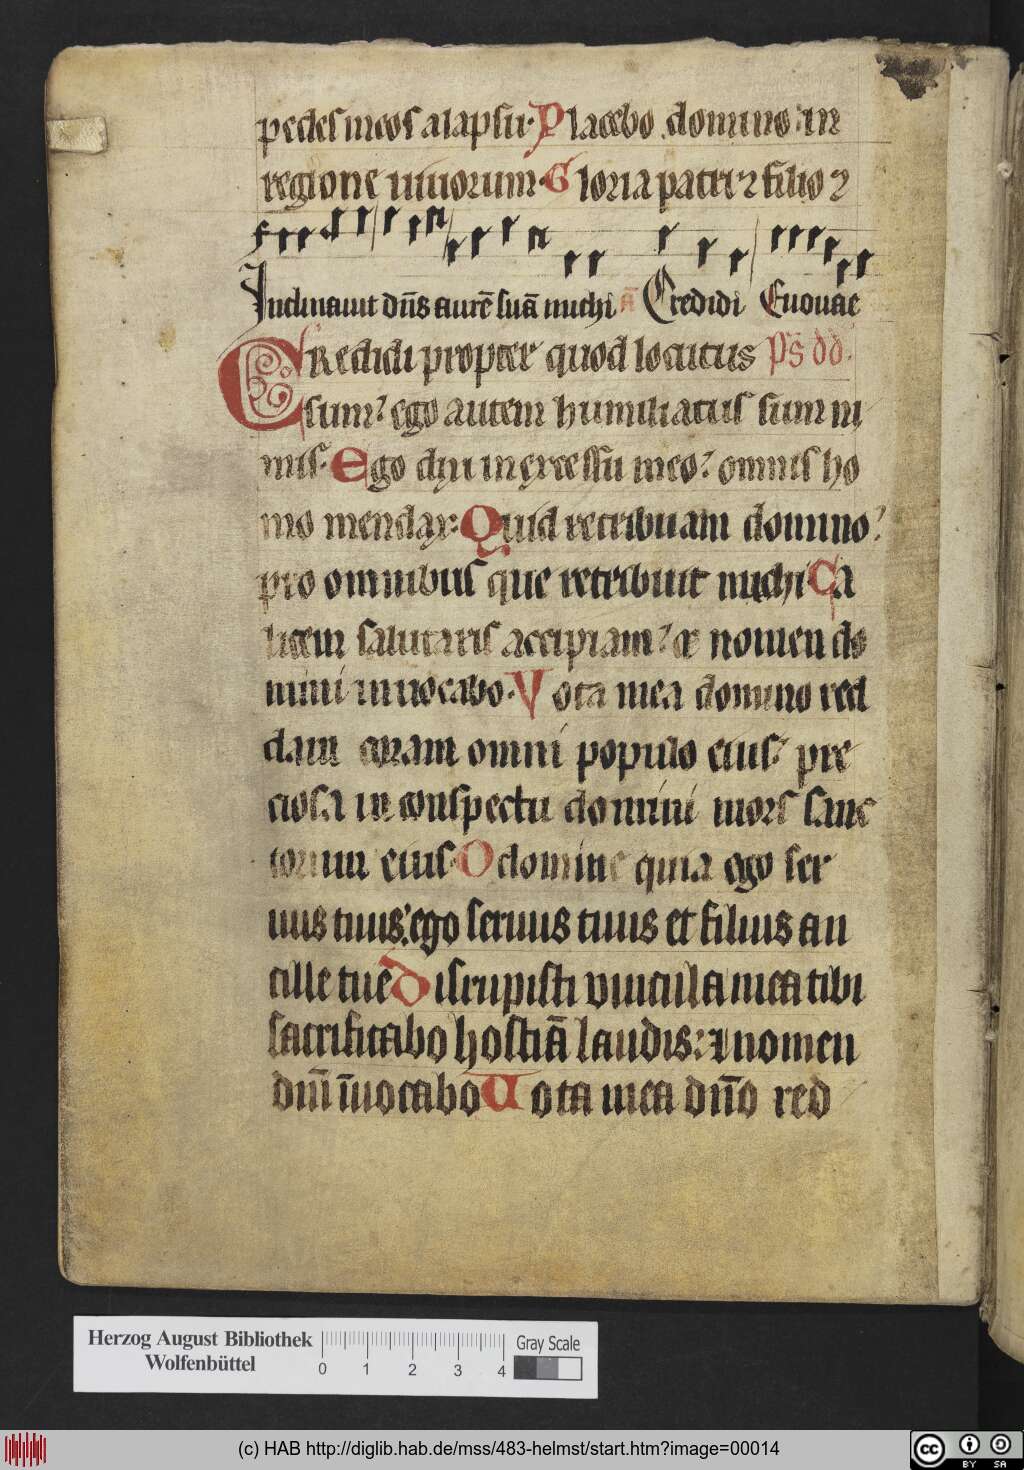 pedes meos a lapsu· Placebo domino in
regione uiuorum· Gloria patri ⁊ filio ⁊
Inclinauit dn̄s aurē suā michi ā Credidi Euouae
CRedidi propter quod locutus Ps̄ dd̄.
sum? ego autem humiliatus sum ni
mis· Ego dixi in excessu meo? omnis ho
mo mendax: Quid retribuam domino?
pro omnibus que retribuit michi Ca
licem salutaris accipiam? & nomen do
mini inuocabo· Vota mea domino red
dam coram omni populo eius? pre
ciosa in conspectu domini mors sanc
torum eius· O domine quia ego ser
uus tuus? ego seruus tuus et filius an
cille tue Disrupisti uincula mea tibi
sacrificabo hostiā laudis: ⁊ nomen
dn̄i īuocabo Uota mea dn̄o red
Herzog August Bibliothek
Wolfenbüttel
0 1 2 3 4
Gray Scale
(c) HAB http://diglib.hab.de/mss/483-helmst/start.htm?image=00014
cc BY SA